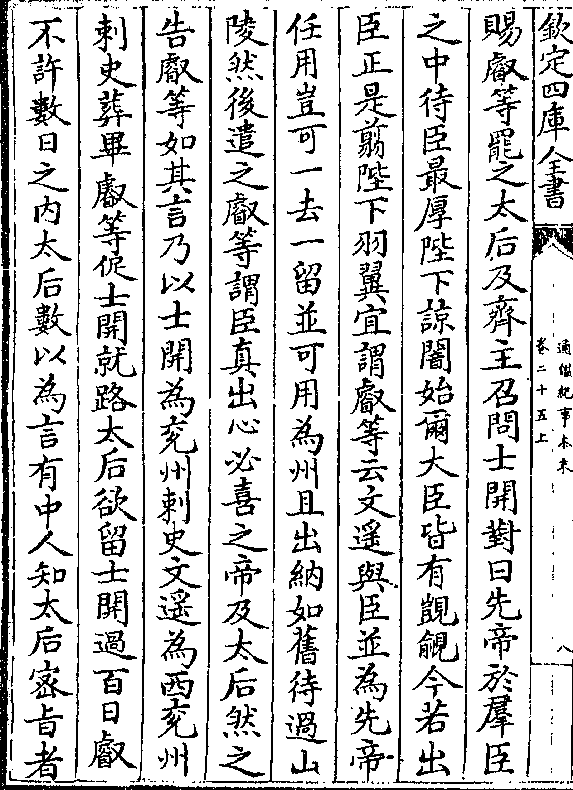 欽定四庫全書
通鑑紀事本末
卷二十五上
八
賜叡等罷之太后及齊主召問士開對曰先帝於羣臣
之中待臣最厚陛下諒闇始爾大臣皆有覬覦今若出
臣正是翦陛下羽翼宜謂叡等云文遥與臣並為先帝
任用豈可一去一留並可用為州且出納如舊待過山
陵然後遣之叡等謂臣真出心必喜之帝及太后然之
告叡等如其言乃以士開為兖州刺史文遥為西兖州
刺史葬畢叡等促士開就路太后欲留士開過百日叡
不許數日之内太后數以為言有中人知太后宻旨者